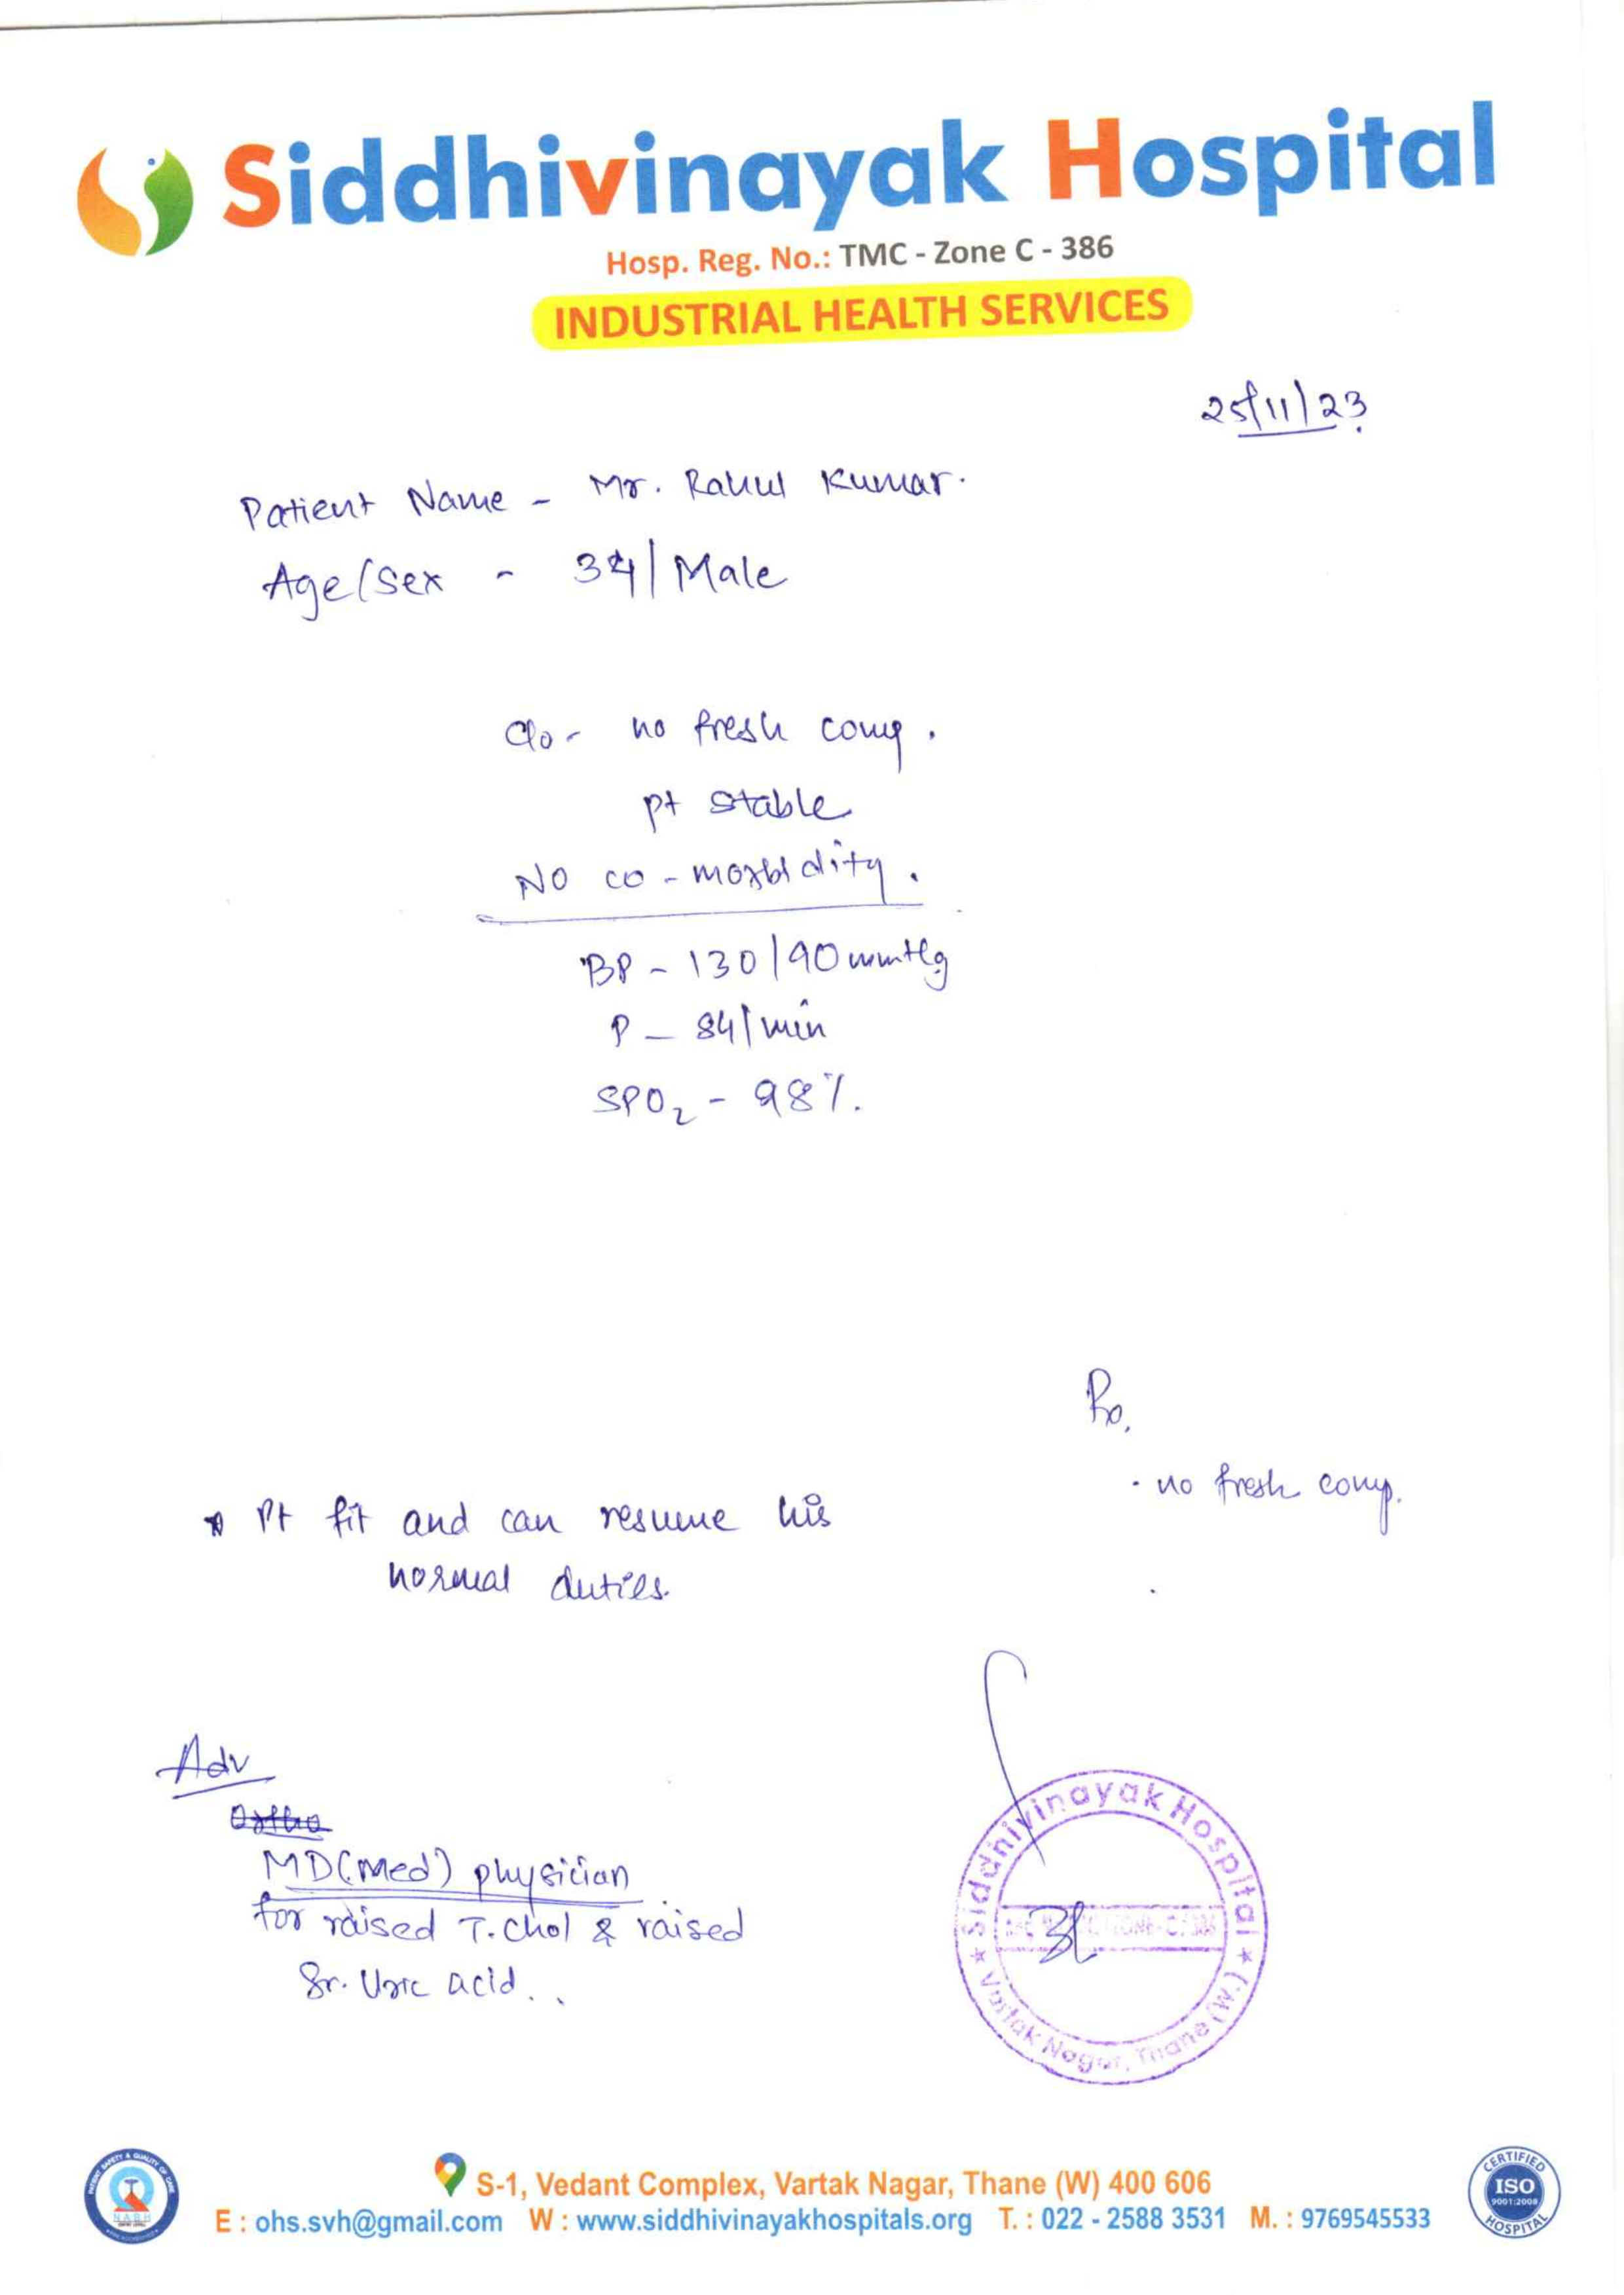 Siddhivinayak Hospital
Hosp. Reg. No.: TMC - Zone C - 386
INDUSTRIAL HEALTH SERVICES
25/11/23
Patient Name - Mr. Rahul Kumar.
Age/Sex - 34/Male
C/o - no fresh comp.
pt stable
NO co-morbidity.
BP - 130/90 mmHg
P - 84/min
SPO2 - 98%.
- no fresh comp.
* Pt fit and can resume his
normal duties.
Adv
Ortho
MD(Med) physician
for raised T.Chol & raised
Sr. Uric acid..
Siddhivinayak Hospital
Vartak Nagar, Thane (W.)
S-1, Vedant Complex, Vartak Nagar, Thane (W) 400 606
E : ohs.svh@gmail.com W : www.siddhivinayakhospitals.org T. : 022 - 2588 3531 M. : 9769545533
PATIENT SAFETY & QUALITY OF CARE
NABH
CERTIFIED
ISO
9001:2008
HOSPITAL